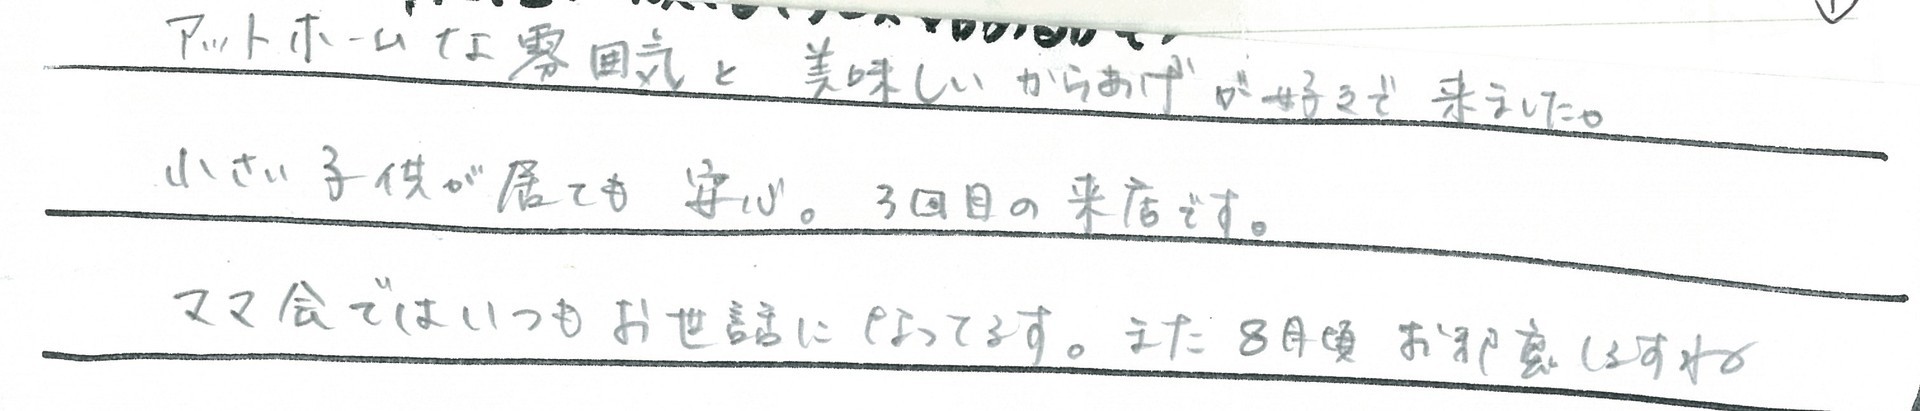 アットホームな雰囲気と 美味しいからあげが好きで 来ました。
小さい子供が居ても 安心。3回目の来店です。
ママ会ではいつもお世話になってます。また8月頃 お邪魔しますね